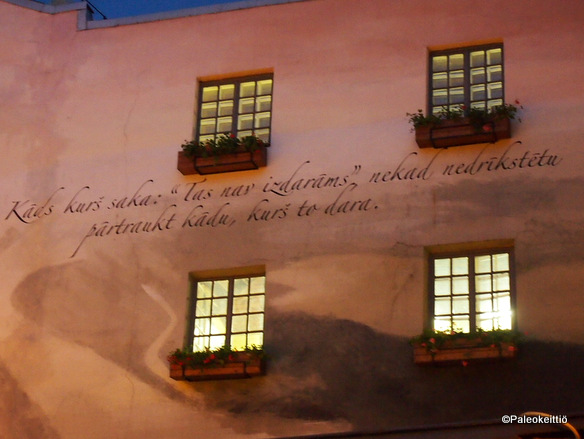 Kāds kurš saka: "Tas nav izdarāms", nekad nedrīkstētu
pārtraukt kādu, kurš to dara.
©Paleokeittiö